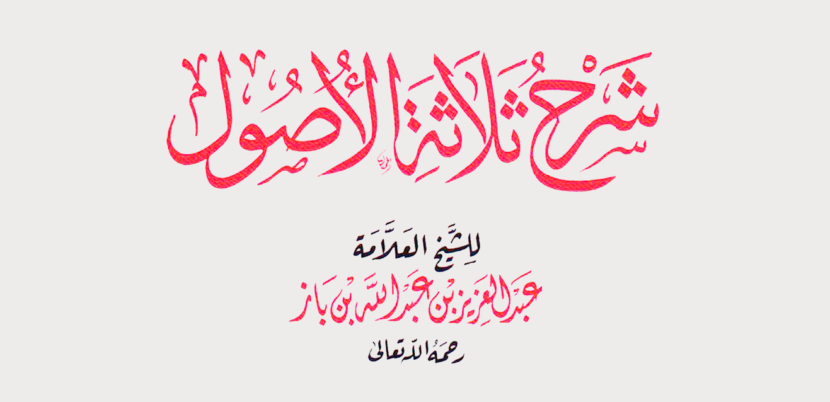 شَرْحُ ثَلَاثَةِ الْأُصُول
لِلشَّيْخِ العَلَّامَة
عَبْدِ العَزِيز بْن عَبْد اللَّه بْن بَاز
رحمَهُ اللّه تعالى